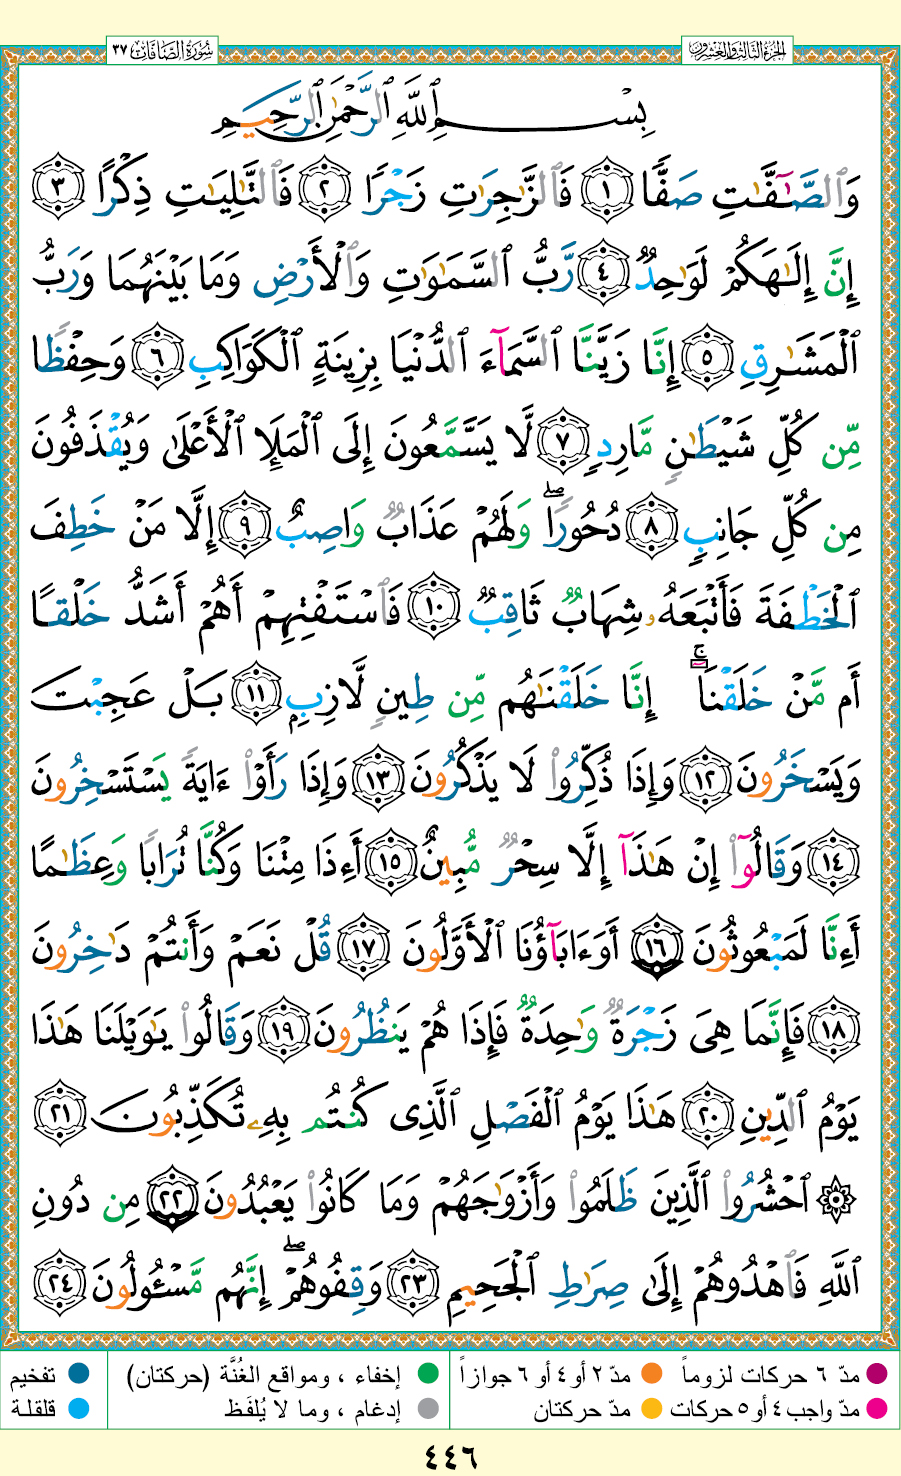 سُورَةُ الصَّافَّات ٣٧
الجُزءُ الثَّالِثُ وَالعِشرُونَ
بِسْمِ ٱللَّهِ ٱلرَّحْمَٰنِ ٱلرَّحِيمِ
وَٱلصَّٰٓفَّٰتِ صَفًّا ١ فَٱلزَّٰجِرَٰتِ زَجْرًا ٢ فَٱلتَّٰلِيَٰتِ ذِكْرًا ٣
إِنَّ إِلَٰهَكُمْ لَوَٰحِدٌ ٤ رَّبُّ ٱلسَّمَٰوَٰتِ وَٱلْأَرْضِ وَمَا بَيْنَهُمَا وَرَبُّ
ٱلْمَشَٰرِقِ ٥ إِنَّا زَيَّنَّا ٱلسَّمَآءَ ٱلدُّنْيَا بِزِينَةٍ ٱلْكَوَاكِبِ ٦ وَحِفْظًا
مِّن كُلِّ شَيْطَٰنٍ مَّارِدٍ ٧ لَّا يَسَّمَّعُونَ إِلَى ٱلْمَلَإِ ٱلْأَعْلَىٰ وَيُقْذَفُونَ
مِن كُلِّ جَانِبٍ ٨ دُحُورًا ۖ وَلَهُمْ عَذَابٌ وَاصِبٌ ٩ إِلَّا مَنْ خَطِفَ
ٱلْخَطْفَةَ فَأَتْبَعَهُۥ شِهَابٌ ثَاقِبٌ ١٠ فَٱسْتَفْتِهِمْ أَهُمْ أَشَدُّ خَلْقًا
أَم مَّنْ خَلَقْنَا ۚ إِنَّا خَلَقْنَٰهُم مِّن طِينٍ لَّازِبٍ ١١ بَلْ عَجِبْتَ
وَيَسْخَرُونَ ١٢ وَإِذَا ذُكِّرُوا۟ لَا يَذْكُرُونَ ١٣ وَإِذَا رَأَوْا۟ ءَايَةً يَسْتَسْخِرُونَ
١٤ وَقَالُوٓا۟ إِنْ هَٰذَآ إِلَّا سِحْرٌ مُّبِينٌ ١٥ أَءِذَا مِتْنَا وَكُنَّا تُرَابًا وَعِظَٰمًا
أَءِنَّا لَمَبْعُوثُونَ ١٦ أَوَءَابَآؤُنَا ٱلْأَوَّلُونَ ١٧ قُلْ نَعَمْ وَأَنتُمْ دَٰخِرُونَ
١٨ فَإِنَّمَا هِىَ زَجْرَةٌ وَٰحِدَةٌ فَإِذَا هُمْ يَنظُرُونَ ١٩ وَقَالُوا۟ يَٰوَيْلَنَا هَٰذَا
يَوْمُ ٱلدِّينِ ٢٠ هَٰذَا يَوْمُ ٱلْفَصْلِ ٱلَّذِى كُنتُم بِهِۦ تُكَذِّبُونَ ٢١
۞ ٱحْشُرُوا۟ ٱلَّذِينَ ظَلَمُوا۟ وَأَزْوَٰجَهُمْ وَمَا كَانُوا۟ يَعْبُدُونَ ٢٢ مِن دُونِ
ٱللَّهِ فَٱهْدُوهُمْ إِلَىٰ صِرَٰطِ ٱلْجَحِيمِ ٢٣ وَقِفُوهُمْ ۖ إِنَّهُم مَّسْـُٔولُونَ ٢٤
مدّ ٦ حركات لزوماً مدّ ٢ أو ٤ أو ٦ جوازاً إخفاء ، ومواقع الغُنَّة (حركتان) تفخيم
مدّ واجب ٤ أو ٥ حركات مدّ حركتان إدغام ، وما لا يُلفَظ قلقلة
٤٤٦